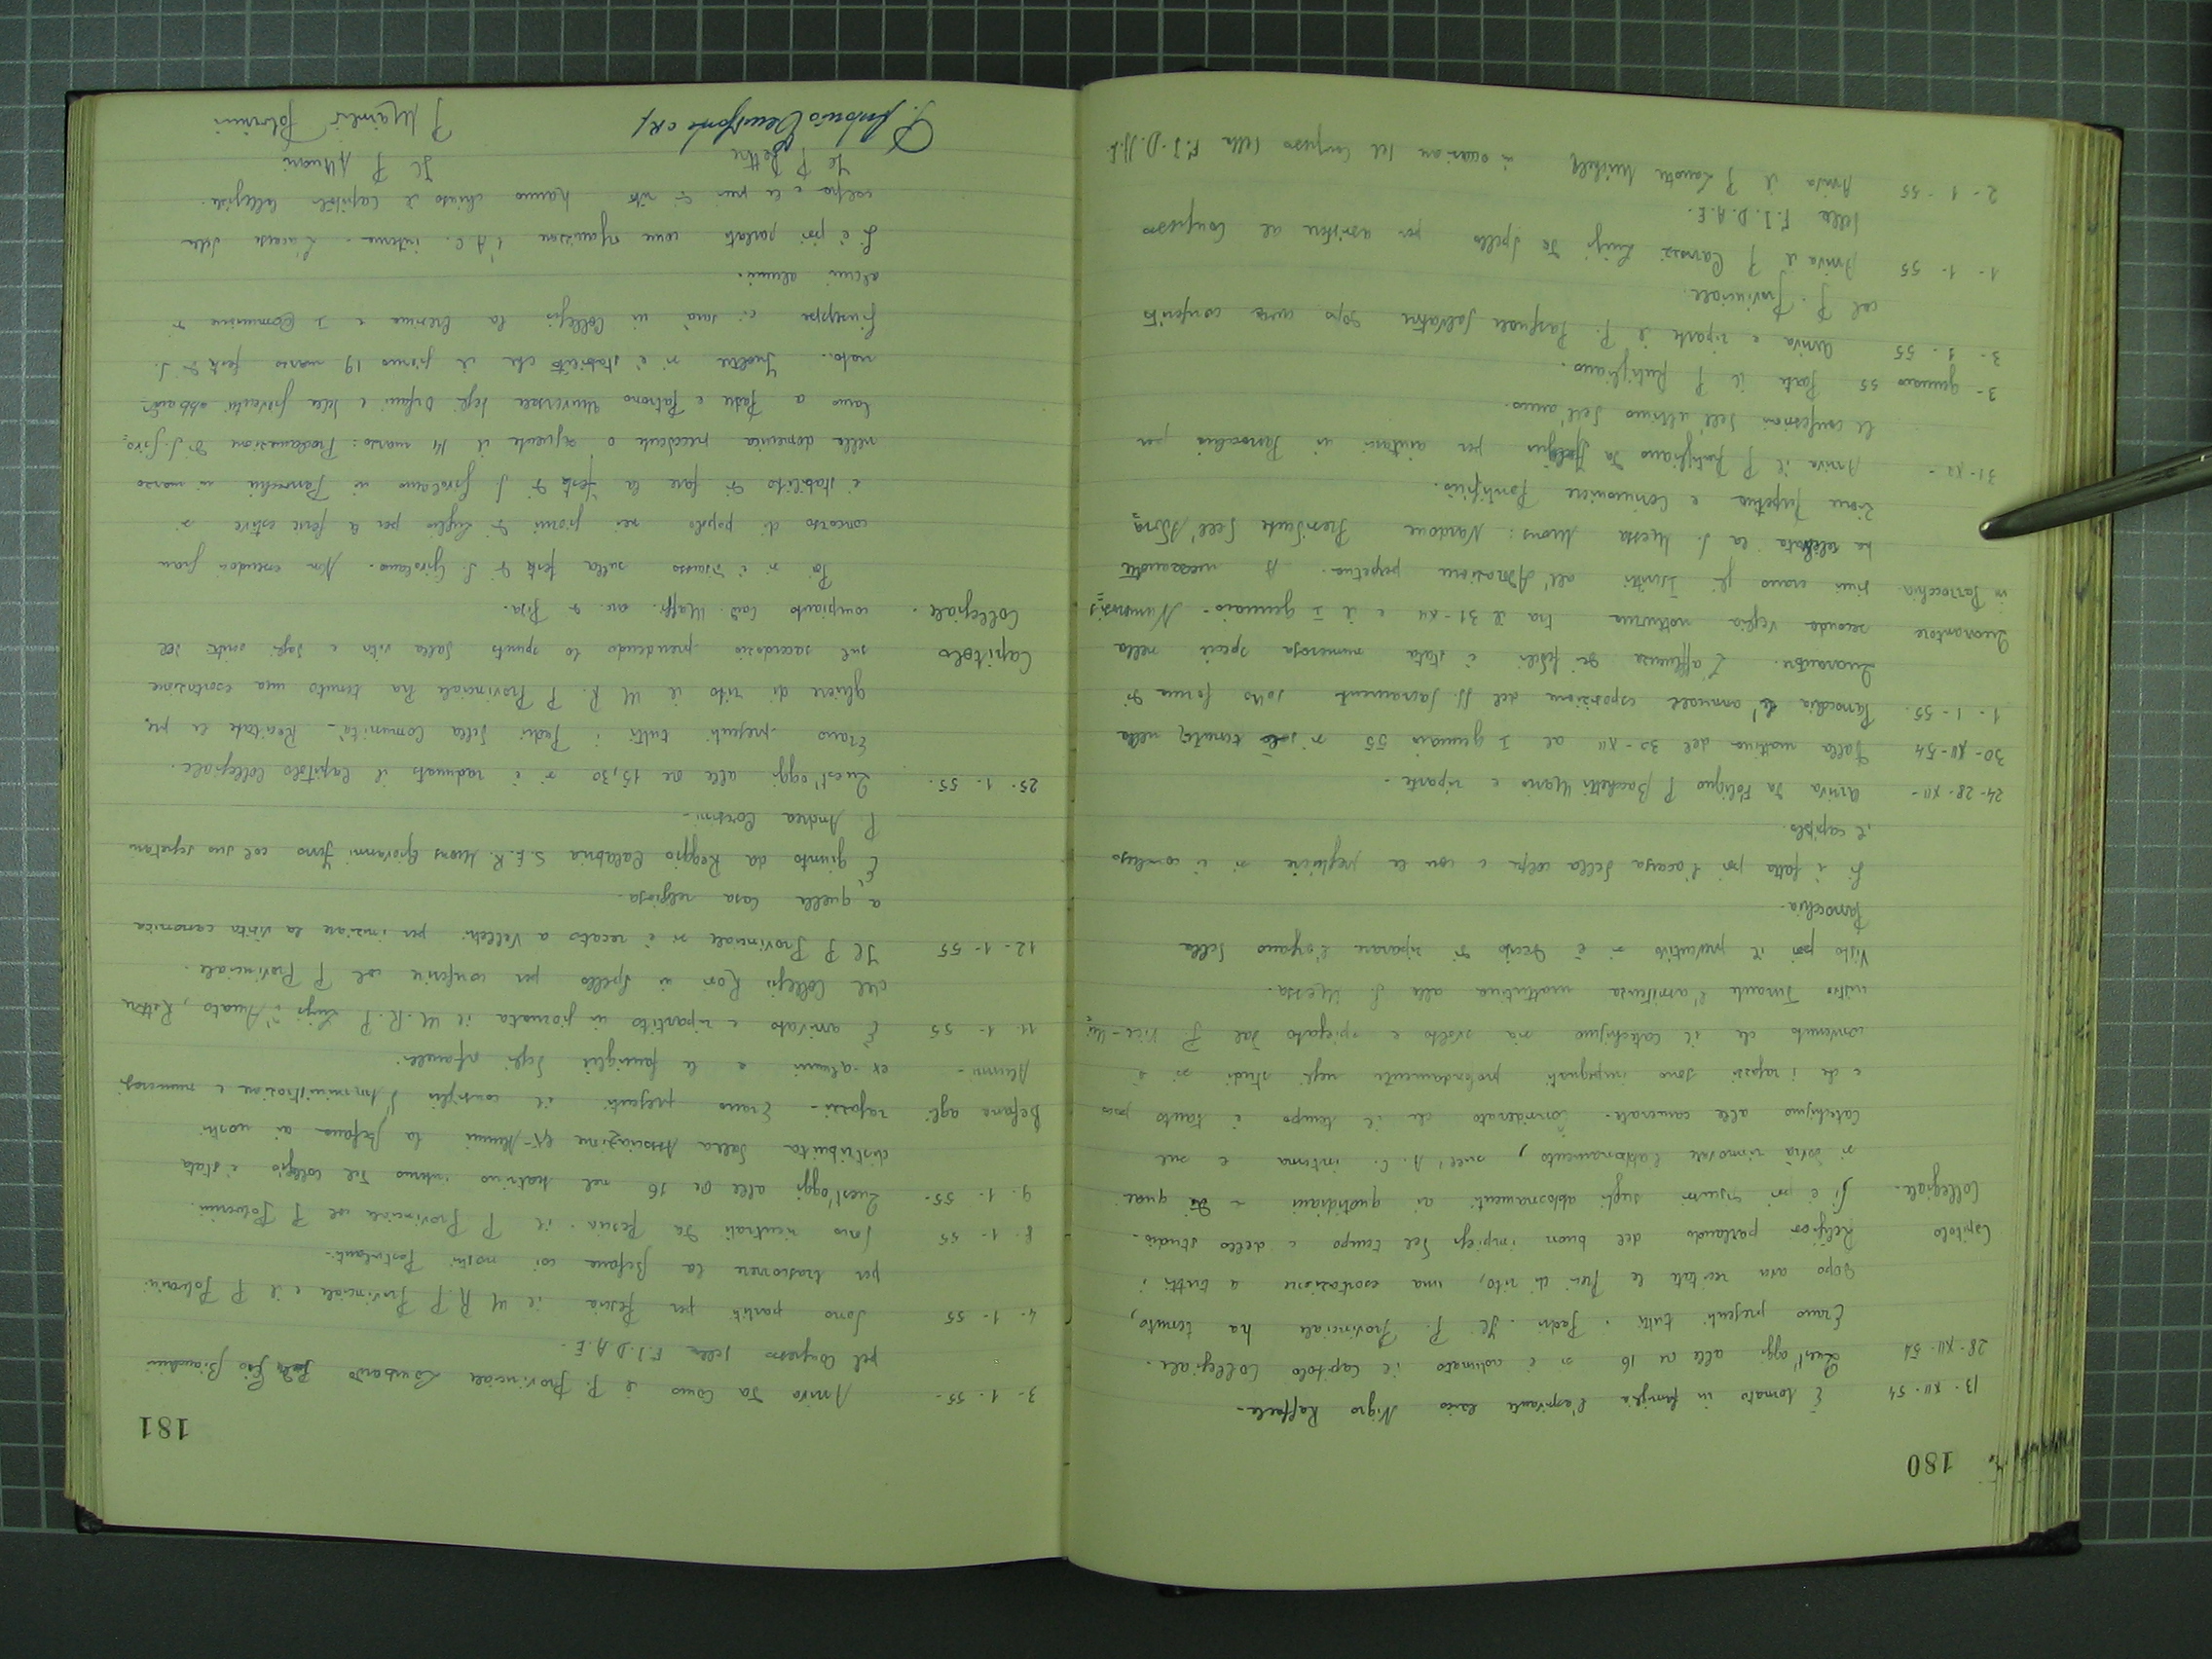 180
13-XII-54 È tornato in famiglia l'aspirante laico Nigro Raffaele.
28-XII-54 Quest'oggi alle ore 16 si è adunato il Capitolo Collegiale.
Erano presenti tutti i Padri. Il P. Provinciale ha tenuto,
dopo aver recitate le Preci di rito, una esortazione a tutti i
Capitolo Religiosi parlando del buon impiego del tempo e dello studio.
Collegiale. Si è poi discusso sugli abbonamenti ai quotidiani e di quale
si dovrà rinnovare l'abbonamento, sull'A. C. interna e sul
Catechismo alle camerate. Considerato che il tempo è tanto poco
e che i ragazzi sono impegnati profondamente negli studi si è
convenuto che il catechismo sia svolto e spiegato dal P. Vice-Mi=
nistro durante l'assistenza mattutina alla S. Messa.
Visto poi il preventivo si è deciso di riparare l'organo della
Parrocchia.
Si è fatta poi l'accusa della colpa e con le preghiere si è concluso
il capitolo.
24-28-XII- Arriva da Foligno P. Bacchetti Mario e riparte.
30-XII-54 Dalla mattina del 30-XII al I gennaio 55 si è tenuta, nella
1-1-55. Parrocchia l'annuale esposizione del SS. Sacramento sotto forma di
Quarantore. L'affluenza di fedeli è stata numerosa specie nella
Quarantore seconda veglia notturna tra il 31-XII e il I gennaio. Numerosis=
in Parrocchia. simi erano gli Iscritti all'Adorazione perpetua. A mezzanotte
ha celebrata la S. Messa Mons: Nardone Presidente dell'Adora=
zione Perpetua e Cerimoniere Pontificio.
31-XII- Arriva il P. Rutigliano da per aiutarci in Parrocchia per
le confessioni dell'ultimo dell'anno.
3-gennaio 55 Parte il P. Rutigliano.
3-1-55 Arriva e riparte il P. Pasquale Salvatore dopo aver conferito
col P. Provinciale.
1-1-55 Arriva il P. Carrozzi Luigi da Spello per assistere al Congresso
della F.I.D.A.E.
2-1-55 Arriva il P. Zanotti Michele in occasione del Congresso della F.I.D.A.E.
181
3-1-55- Arriva da Como il P. Provinciale Lombardo Bianchini
pel Congresso della F.I.D.A.E.
4-1-55 Sono partiti per Pescia il M. R. P. Provinciale e il P. Polvorini
per trascorrere la Befana coi nostri Postulanti.
8-1-55 Sono rientrati da Pescia il P. Provinciale col P. Polvorini.
9-1-55- Quest'oggi alle ore 16 nel teatrino interno del Collegio è stata
distribuita dalla Associazione ex-Alunni la Befana ai nostri
Befana agli ragazzi. Erano presenti il consiglio d'Amministrazione e numerosi
Alunni- ex-alunni e le famiglie degli orfanelli.
11-1-55 È arrivato e ripartito in giornata il M. R. P. Luigi D'Amato, Rettore
del Collegio Rosi in Spello per conferire col P. Provinciale.
12-1-55 Il P. Provinciale si è recato a Velletri per iniziare la visita canonica
a quella Casa religiosa.
È giunto da Reggio Calabria S. E. R. Mons Giovanni Ferro col suo segretario
P. Andrea
25-1-55. Quest'oggi alle ore 15,30 si è radunato il Capitolo Collegiale.
Erano presenti tutti i Padri della Comunità. Recitate le pre=
ghiere di rito il M. R. P. Provinciale ha tenuto una esortazione
Capitolo sul sacerdozio prendendo lo spunto dalla vita e dagli scritti del
Collegiale. compianto Card. Maffi. arc. di Pisa.
Poi si è discusso sulla festa di S. Girolamo. Non essendovi gran
concorso di popolo nei giorni di luglio per le ferie estive si
è stabilito di fare la festa di S. Girolamo in Parrocchia in marzo
nella domenica precedente o seguente il 14 marzo: Proclamazione di S. Giro=
lamo a Padre e Patrono Universale degli Orfani e della gioventù abbando=
nata. Inoltre si è stabilito che il giorno 19 marzo festa di S.
Giuseppe ci sarà in Collegio la Cresima e I Comunione di
alcuni alunni.
Si è poi parlato come organizzare l'A. C. interna. L'accusa della
colpa e le preci di rito hanno chiuso il Capitolo Collegiale.
Il P. Rettore Il P. Attuario
P. Antonio CRS P. Polvorini